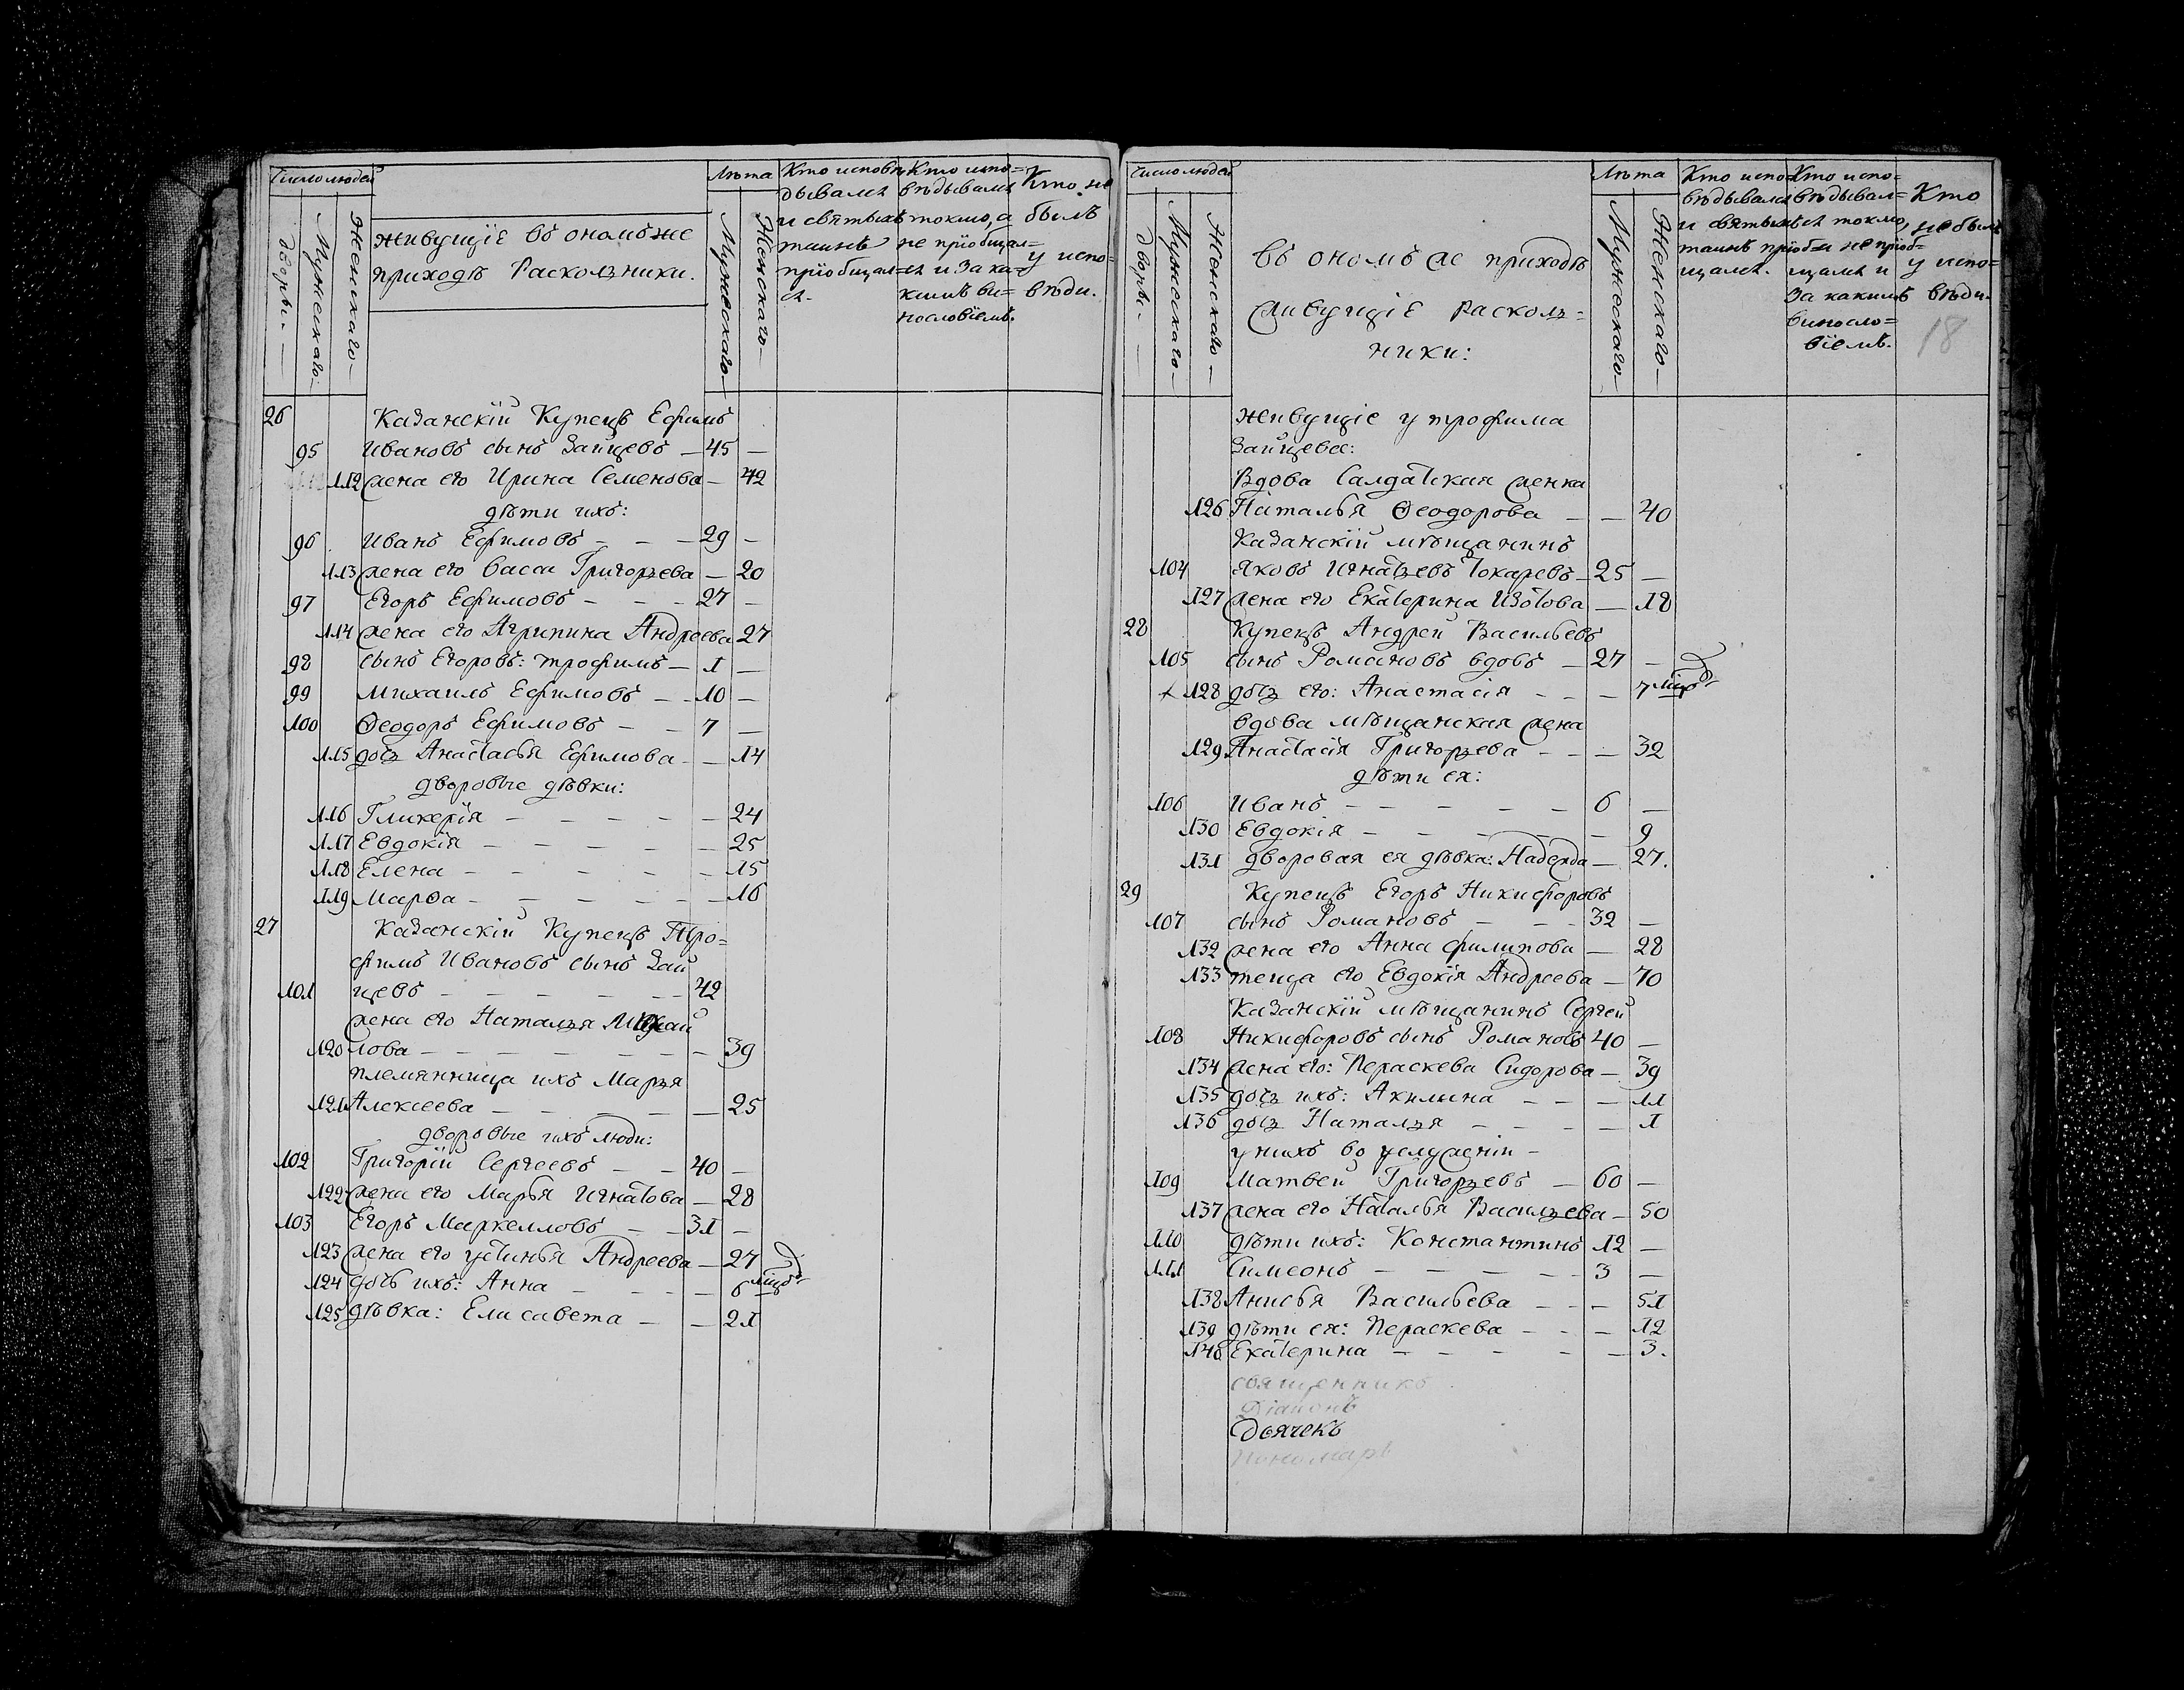 Число людей
дворы.
Мужескаго.
Женскаго
Живущіе въ ономъ же
приходѣ Раскольники.
Лѣта
Мужескаго
Женскаго
Кто исповѣ
дывался
и святыхъ
таинъ
пріобщал=
ся.
Кто испо=
вѣдывался
токмо, а
не пріобщал=
ся и за ка=
кимъ ви=
нословіемъ.
Кто не
былъ
у испо=
вѣди.
26 Казанскій Купецъ Ефимъ
95 Ивановъ сынъ Зайцевъ — 45 —
112 жена его Ирина Семенова — 42
дѣти ихъ:
96 Иванъ Ефимовъ — — — 29 —
113 жена его Васса Григорьева — 20
97 Егоръ Ефимовъ — — — 27 —
114 жена его Агрипина Андреева 27
98 сынъ Егоровъ: Трофимъ — 1 —
99 Михаилъ Ефимовъ — — 10 —
100 Ѳеодоръ Ефимовъ — — 7 —
115 дочь Анастасья Ефимова — — 14
дворовые дѣвки:
116 Гликерія — — — — — 24
117 Евдокія — — — — — 25
118 Елена — — — — — 15
119 Марѳа — — — — — 16
27 Казанскій Купецъ Тро=
фимъ Ивановъ сынъ Зай
101 цевъ — — — — — 42
жена его Наталья Михай
120 лова — — — — — — 39
племянница ихъ Марья
121 Алексеева — — — — 25
дворовые ихъ люди:
102 Григорій Сергеевъ — — 40 —
122 жена его Марья Игнатова — 28
103 Егоръ Маркелловъ — 31 —
123 жена его Устинья Андреева — 27
124 дочь ихъ: Анна — — — — 6
125 дѣвка: Елисавета — — 21
Число людей
дворы.
Мужескаго
Женскаго
Въ ономъ же приходѣ
живущіе расколь=
ники:
Лѣта
Мужескаго
Женскаго
Кто испо=
вѣдывался
и святыхъ
таинъ пріоб=
щался.
Кто испо=
вѣдывал=
ся токмо,
а не пріоб=
щался и
за какимъ
винosло=
віемъ.
Кто
не былъ
у испо=
вѣди.
18
живущіе у трофима
Зайцева:
Вдова Салдатская женка
126 Наталья Ѳеодорова — — 40
Казанскій мѣщанинъ
104 Яковъ Игнатьевъ Токаревъ — 25 —
127 жена его Екатерина Изотова — 18
28 Купецъ Андрей Васильевъ
105 сынъ Романовъ вдовъ — 27 —
128 дочь его: Анастасія — — — 7
вдова мѣщанская жена
129 Анастасія Григорьева — — — 32
дѣти ея:
106 Иванъ — — — — — 6 —
130 Евдокія — — — — — 9
131 дворовая ея дѣвка: Надежда — 27.
29 Купецъ Егоръ Никифоровъ
107 сынъ Романовъ — — — 32 —
132 жена его Анна филипова — 28
133 теща его Евдокія Андреева — 70
Казанскій мѣщанинъ Сергей
108 Никифоровъ сынъ Романовъ 40 —
134 жена его: Пераскева Сидорова — 39
135 дочь ихъ: Акилина — — — 11
136 дочь Наталья — — — — 1
у нихъ во услуженіи —
109 Матвей Григорьевъ — 60 —
137 жена его Наталья Васильева — 50
110 дѣти ихъ: Константинъ 12 —
111 Симеонъ — — — — — 3 —
138 Анисья Васильева — — — 51
139 дѣти ея: Пераскева — — — 12
140 Екатерина — — — — — 3.
священникъ
Діаконъ
Дьячекъ
Пономарь